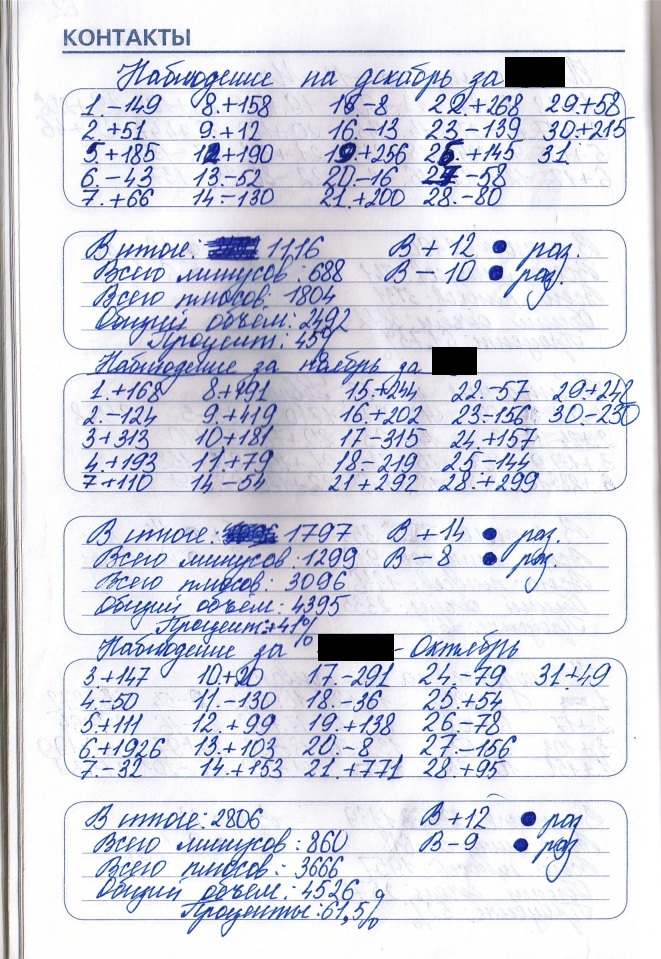 КОНТАКТЫ
Наблюдение на декабрь за
1.-149 8.+158 18-8 22.+268 29+58
2.+51 9.+12 16.-13 23-139 30.+215
5.+185 12+190 19.+256 26.+145 31
6.-43 13.-52 20.-16 27.-58
7.+66 14.-130 21.+200 28.-80
В итоге: 1116 В + 12 раз.
Всего минусов: 688 В - 10 раз.
Всего плюсов: 1804
Общий объем: 2492
Процент: 45%
Наблюдение за ноябрь за
1.+168 8+191 15.+244 22.-57 29+248
2.-124 9.+419 16.+202 23-156 30.-230
3+313 10+181 17-315 24.+157
4.+193 11+79 18-219 25-144
7+110 14-54 21+292 28.+299
В итоге: 1797 В +14 раз.
Всего минусов: 1299 В - 8 раз.
Всего плюсов: 3096
Общий объем: 4395
Процент:+41%
Наблюдение за - Октябрь
3.+147 10.+20 17.-291 24.-79 31+49
4.-50 11.-130 18.-36 25.+54
5.+111 12.+99 19.+138 26-78
6.+1926 13.+103 20.-8 27.-156
7.-32 14.+153 21.+771 28.+95
В итоге: 2806 В +12 раз
Всего минусов: 860 В - 9 раз
Всего плюсов: 3666
Общий объем: 4526
Проценты: 61,5%